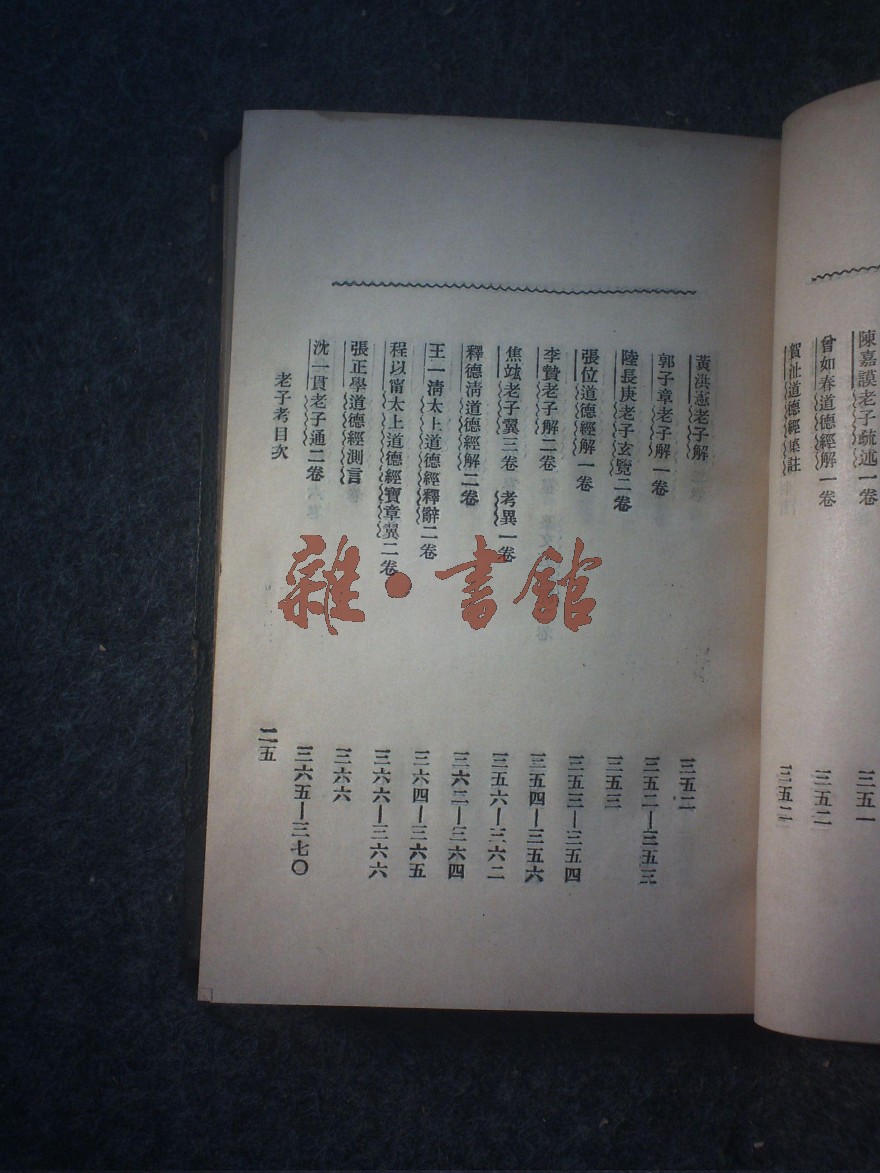 陳嘉謨老子疏述一卷 三五一
曾如春道德經解一卷 三五二
賀沚道德經集註 三五二
黃洪憲老子解 三五二
郭子章老子解一卷 三五二—三五三
陸長庚老子玄覽二卷 三五三
張位道德經解一卷 三五三—三五四
李贄老子解二卷 三五四—三五六
焦竑老子翼三卷 考異一卷 三五六—三六二
釋德淸道德經解二卷 三六二—三六四
王一淸太上道德經釋辭二卷 三六四—三六五
程以甯太上道德經寶章翼二卷 三六六—三六六
張正學道德經測言 三六六
沈一貫老子通二卷 三六五—三七〇
老子考目次 二五
雜·書館